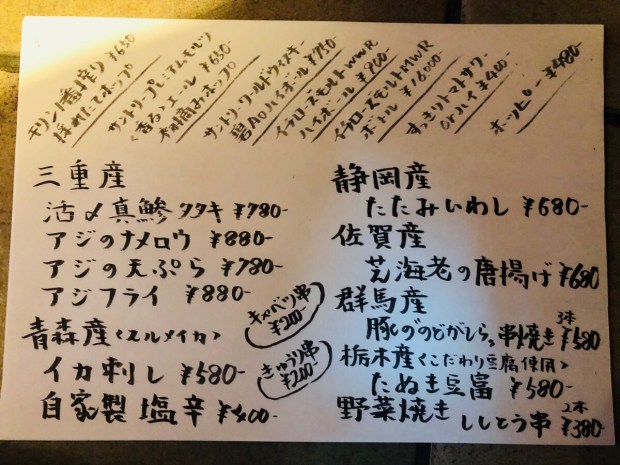 キリン一番搾り ¥650
採れたてホップ
サントリープレミアムモルツ
〈香る〉エール ¥650-
サントリーワールドウイスキー
碧Aoハイボール ¥750
イチローズモルトWWR
ハイボール ¥900
イチローズモルトMWR
ボトル ¥16000
すっきりトマトサワー
orハイ ¥480
ホッピー ¥480-
三重産
活〆真鯵タタキ ¥780-
アジのナメロウ ¥880-
アジの天ぷら ¥780-
アジフライ ¥880-
キャベツ串
¥200-
青森産〈スルメイカ〉
イカ刺し ¥580-
自家製塩辛 ¥400-
きゅうり串
¥200-
静岡産
たたみいわし ¥680-
佐賀産
芝海老の唐揚げ ¥680
群馬産
豚ののどがしら串焼き 3本 ¥580
栃木産〈こだわり豆腐使用〉
たぬき豆富 ¥580-
野菜焼き ししとう串 2本 ¥380